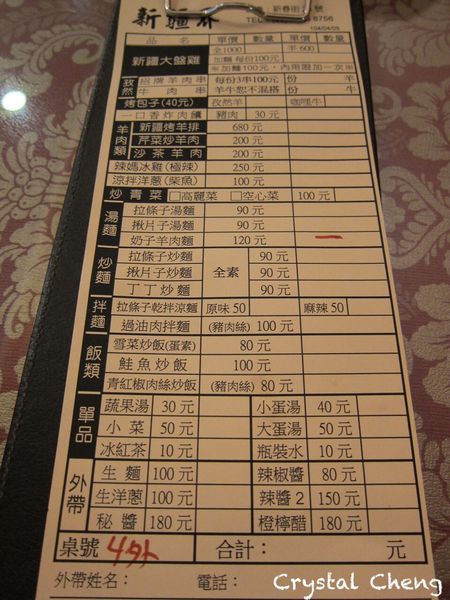 新疆
TEL: 8756
104/04/09
品名 單價 數量 單價 數量
新疆大盤雞 全1000 半600
加麵 每份100元
加湯100元，內用限加一次
孜然 招牌羊肉串 每份3串100元 份 羊
牛肉串 羊牛恕不混搭 份 牛
烤包子(40元) 孜然羊 咖哩牛
一口香炸肉饢 豬肉 30元
羊肉類 新疆烤羊排 680元
芹菜炒羊肉 200元
沙茶羊肉 200元
辣媽冰雞(極辣) 250元
涼拌洋蔥(柴魚) 100元
炒青菜 □高麗菜 □空心菜 100元
湯麵 拉條子湯麵 90元
揪片子湯麵 90元
奶子羊肉麵 120元 一
炒麵 拉條子炒麵 全素 90元
揪片子炒麵 90元
丁丁炒麵 90元
拌麵 拉條子乾拌涼麵 原味50 麻辣50
過油肉拌麵 (豬肉絲) 100元
飯類 雪菜炒飯(蛋素) 80元
鮭魚炒飯 100元
青紅椒肉絲炒飯 (豬肉絲) 80元
單品 蔬果湯 30元 小蛋湯 40元
小菜 50元 大蛋湯 50元
冰紅茶 10元 瓶裝水 10元
外帶 生麵 100元 辣椒醬 80元
生洋蔥 100元 辣醬2 150元
秘醬 180元 橙檸醋 180元
桌號 4外 合計： 元
外帶姓名： 電話：
Crystal Cheng